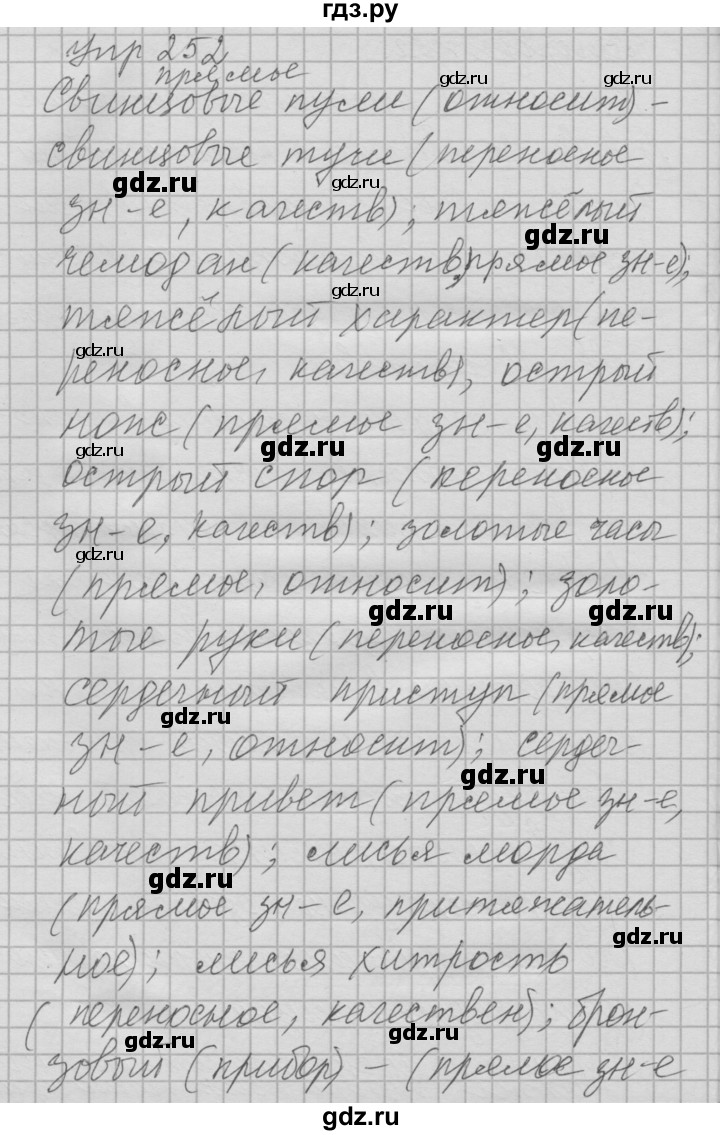 гдз.ру
упр 252
прямое
Свинцовые пули (относит) –
свинцовые тучи (переносное
зн-е, качеств); тяжёлый
чемодан (качеств, прямое зн-е);
тяжёлый характер (пе-
реносное, качеств), острый
нож (прямое зн-е, качеств);
острый спор (переносное
зн-е, качеств); золотые часы
(прямое, относит); золо-
тые руки (переносное, качеств);
сердечный приступ (прямое
зн-е, относит); сердеч-
ный привет (прямое зн-е,
качеств); лисья морда
(прямое зн-е, притяжатель-
ное); лисья хитрость
(переносное, качествен); брон-
зовый (прибор) – (прямое зн-е
gdz.ru